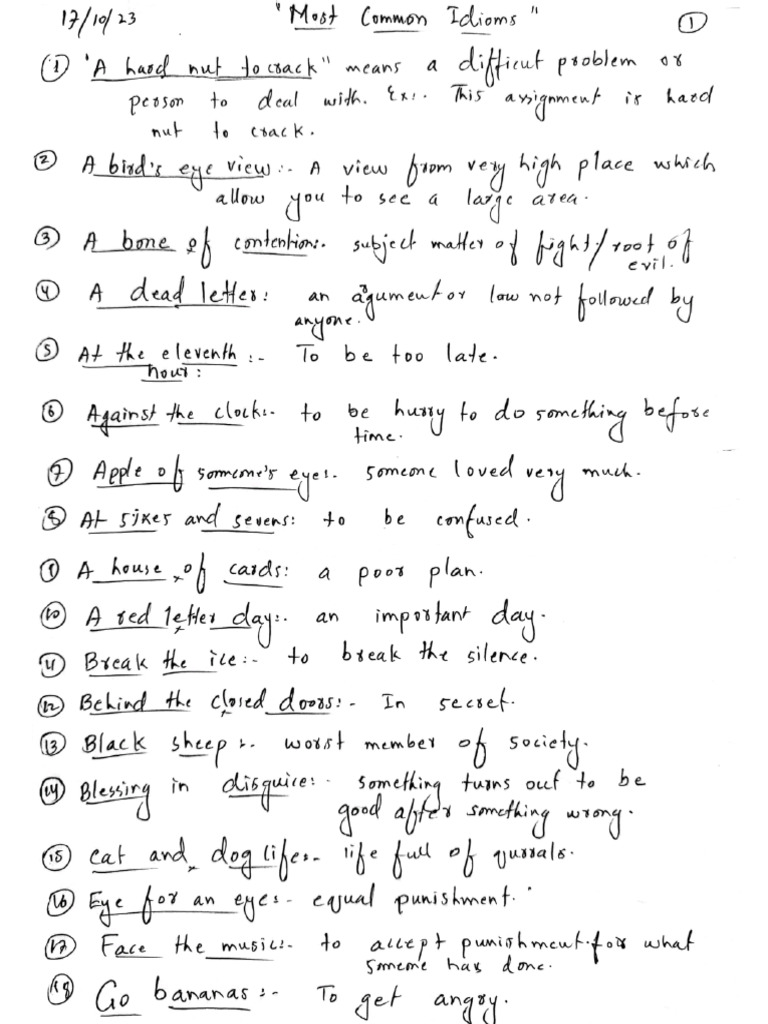 17/10/23 "Most Common Idioms" 1
1 "A hard nut to crack" means a difficut problem or
person to deal with. Ex:. This assignment is hard
nut to crack.
2 A bird's eye view:- A view from very high place which
allow you to see a large area.
3 A bone of contention:- subject matter of fight/root of
evil.
4 A dead letter: an argument or law not followed by
anyone.
5 At the eleventh :- To be too late.
hour:
6 Against the clock:- to be hurry to do something before
time.
7 Apple of someone's eye:- someone loved very much.
8 At sixes and sevens: to be confused.
9 A house of cards: a poor plan.
10 A red letter day:- an important day.
11 Break the ice:- to break the silence.
12 Behind the closed doors:- In secret.
13 Black sheep :- worst member of society.
14 Blessing in disguice:- something turns out to be
good after something wrong.
15 Cat and dog life:- life full of qurrals.
16 Eye for an eye:- equal punishment.
17 Face the music:- to accept punishment for what
someone has done.
18 Go bananas :- To get angry.